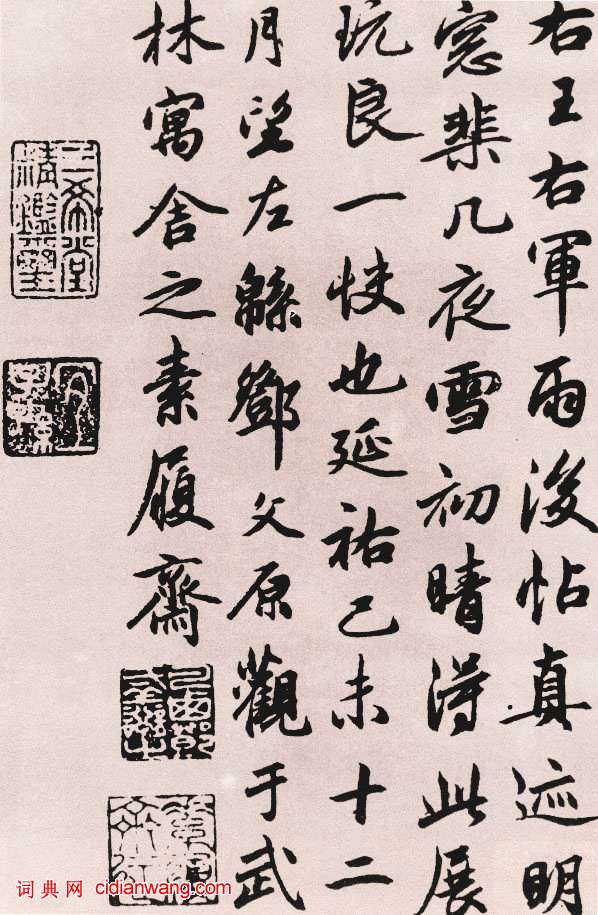 右王右軍雨後帖真迹明
窓棐几夜雪初晴得此展
玩良一快也延祐己未十二
月望左緜鄧文原觀于武
林寓舍之素履齋
三希堂精鑑璽
宜子孫
詞典网 cidianwang.com